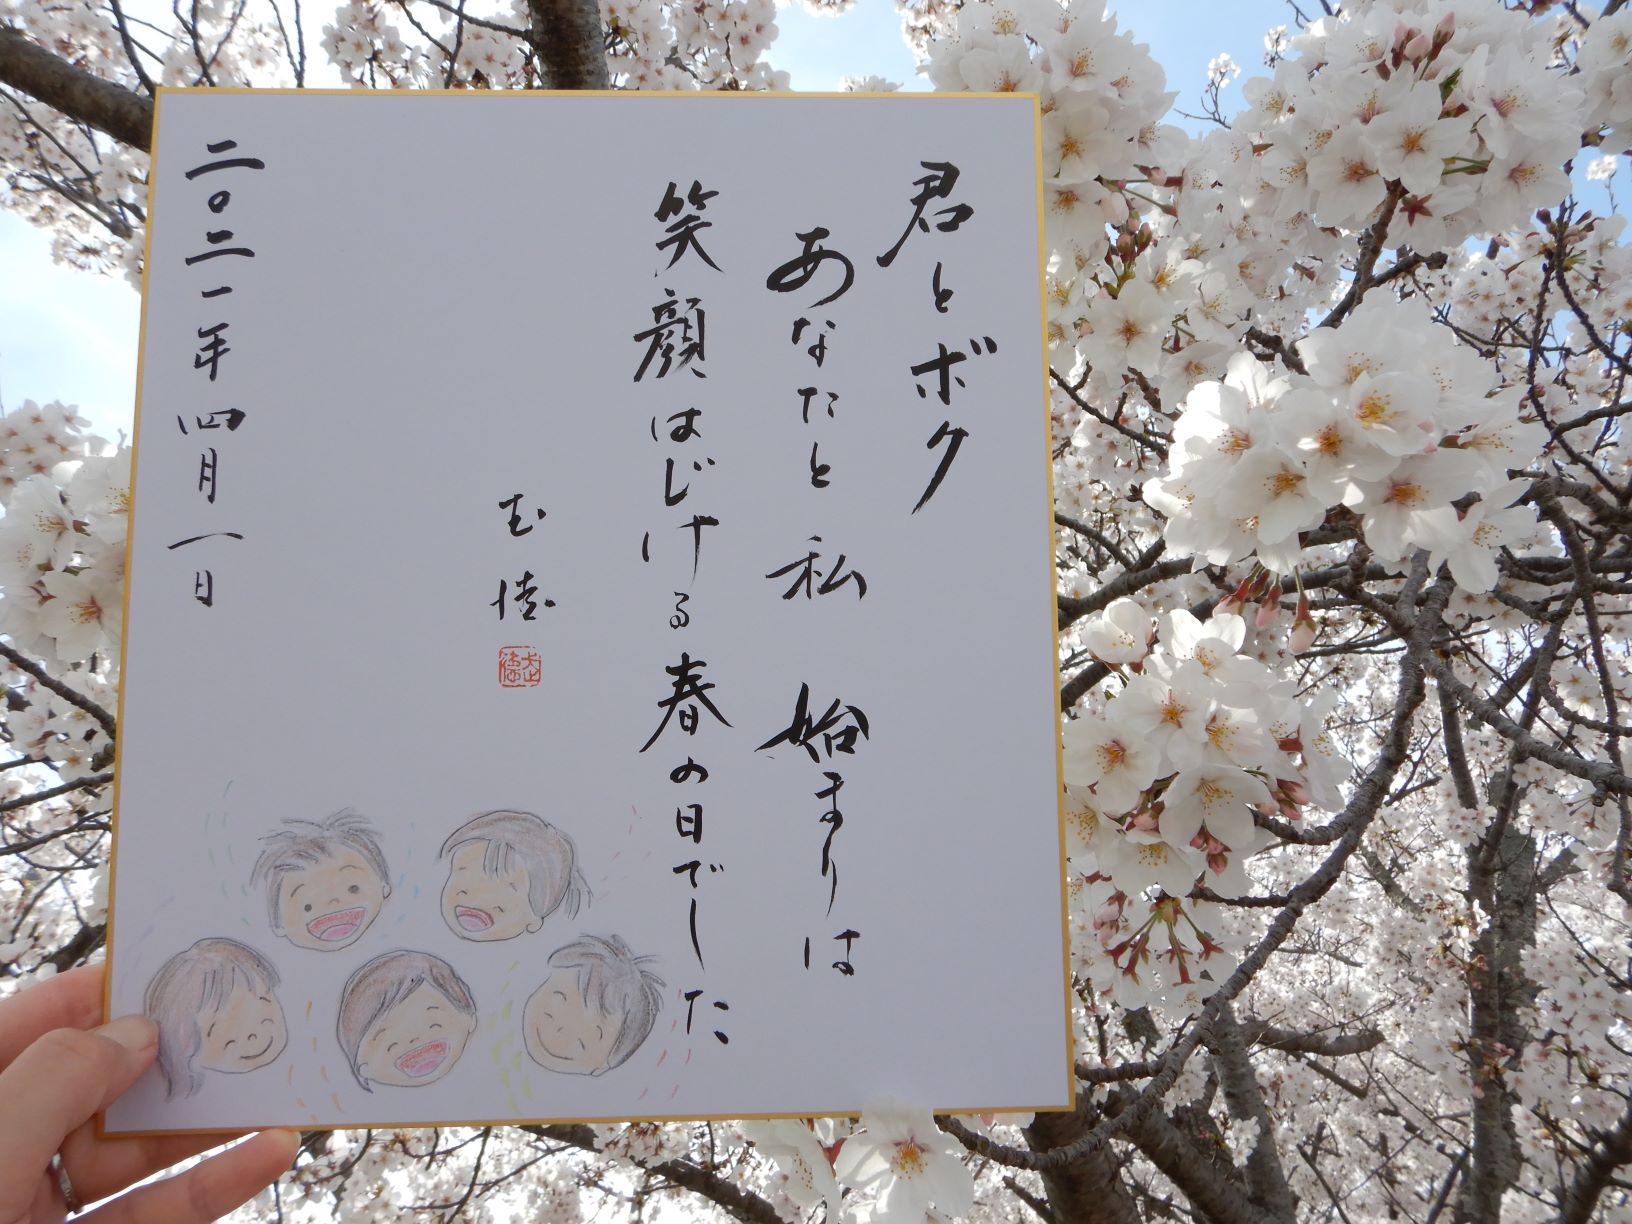 君とボク
あなたと私 始まりは
笑顔はじける春の日でした
二〇二一年 四月一日